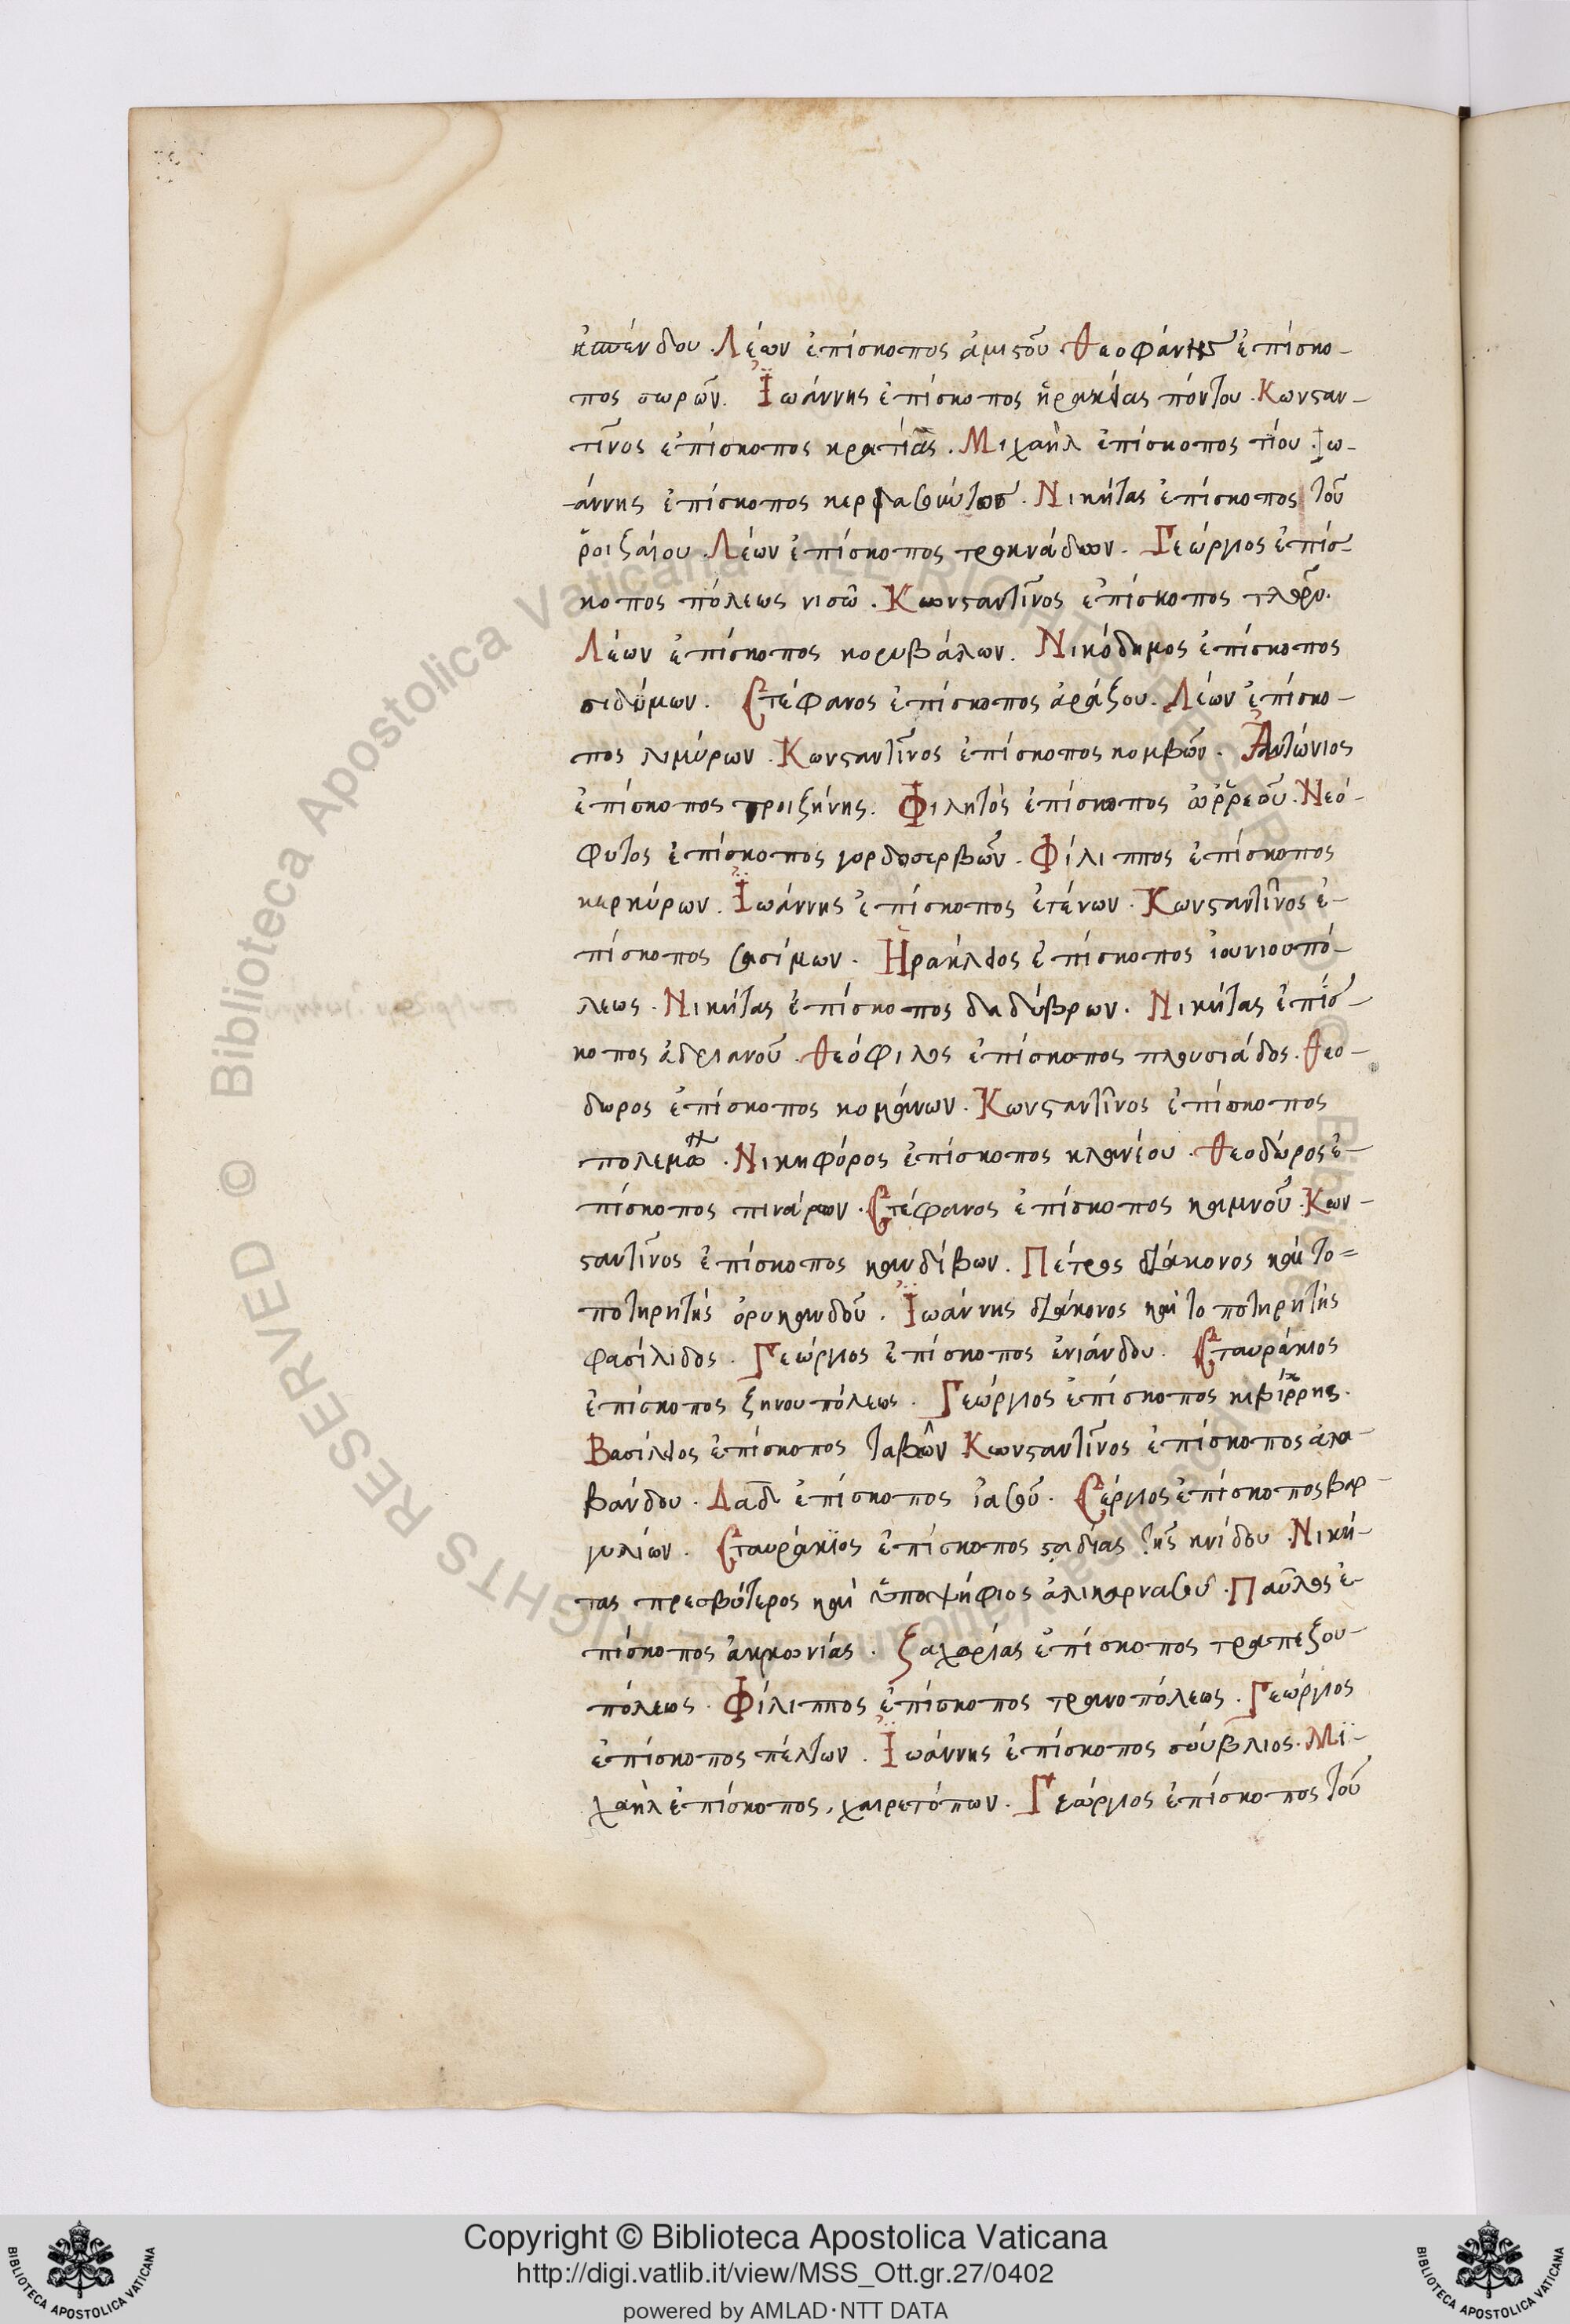 κινένδου. Λέων ἐπίσκοπος ἀμισοῦ. Θεοφάνης ἐπίσκο-
πος σωρῶν. Ἰωάννης ἐπίσκοπος ἡρακλείας πόντου. Κωνσταν-
τῖνος ἐπίσκοπος κρατίας. Μιχαὴλ ἐπίσκοπος τίου. Ἰω-
άννης ἐπίσκοπος Νικήτας ἐπίσκοπος τοῦ
ῥοιζαίου. Λέων ἐπίσκοπος τρακνάδων. Γεώργιος ἐπίσ-
κοπος πόλεως νισῶ. Κωνσταντῖνος ἐπίσκοπος
Λέων ἐπίσκοπος κορυβάλων. Νικόδημος ἐπίσκοπος
σιδύμων. Στέφανος ἐπίσκοπος ἀράξου. Λέων ἐπίσκο-
πος λιμύρων. Κωνσταντῖνος ἐπίσκοπος κομβῶν. Ἀντώνιος
ἐπίσκοπος τροιζήνης. Φιλητὸς ἐπίσκοπος ὠῤῥεοῦ. Νεό-
φυτος ἐπίσκοπος γορδοσερβῶν. Φίλιππος ἐπίσκοπος
κερκύρων. Ἰωάννης ἐπίσκοπος ἐτένων. Κωνσταντῖνος ἐ-
πίσκοπος σασίμων. Ἡράκλειος ἐπίσκοπος ἰουνιουπό-
λεως. Νικήτας ἐπίσκοπος δαδύβρων. Νικήτας ἐπίσ-
κοπος ἀδριανοῦ. Θεόφιλος ἐπίσκοπος πλουσιάδος. Θεο-
δωρος ἐπίσκοπος κομάνων. Κωνσταντῖνος ἐπίσκοπος
Νικηφόρος ἐπίσκοπος κλανέου. Θεοδώρος ἐ-
πίσκοπος πινάρων. Στέφανος ἐπίσκοπος καμνοῦ. Κων-
σταντῖνος ἐπίσκοπος κανδίβων. Πέτρος διάκονος καὶ το-
ποτηρητὴς ὀρυκανδοῦ. Ἰωάννης διάκονος καὶ τοποτηρητὴς
φασίλιδος. Γεώργιος ἐπίσκοπος ἐνιάνδου. Σταυράκιος
ἐπίσκοπος ζηνουπόλεως. Γεώργιος ἐπίσκοπος κιβίρρης.
Βασίλειος ἐπίσκοπος ταβῶν Κωνσταντῖνος ἐπίσκοπος ἀλα-
βάνδου. Δαδ ἐπίσκοπος ἰασοῦ. Σέργιος ἐπίσκοπος βαρ-
γυλίων. Σταυράκϊος ἐπίσκοπος σταδίας τῆς κνίδου. Νική-
τας πρεσβύτερος καὶ ὑποψήφιος ἁλικαρνασοῦ. Παῦλος ἐ-
πίσκοπος ἀκμωνίας. Ζαχαρίας ἐπίσκοπος τραπεζου-
πόλεως. Φίλιππος ἐπίσκοπος τρανοπόλεως. Γεώργιος
ἐπίσκοπος πέλτων. Ἰωάννης ἐπίσκοπος σύβλιος. Μϊ-
χαὴλ ἐπίσκοπος, χαιρετόπων. Γεώργιος ἐπίσκοπος τοῦ
© Biblioteca Apostolica Vaticana ALL RIGHTS RESERVED © Biblioteca Apostolica Vaticana ALL RIGHTS RESERVED
Copyright © Biblioteca Apostolica Vaticana
http://digi.vatlib.it/view/MSS_Ott.gr.27/0402
powered by AMLAD·NTT DATA
BIBLIOTECA APOSTOLICA VATICANA
BIBLIOTECA APOSTOLICA VATICANA